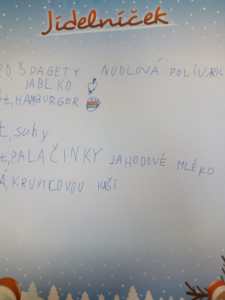 Jídelníček
PO ŠPAGETY NUDLOVÁ POLÍVK
JABLKO
HAMBURGER
PALAČINKY JAHODOVÉ MLÉKO
KRUPICOVOU KAŠI